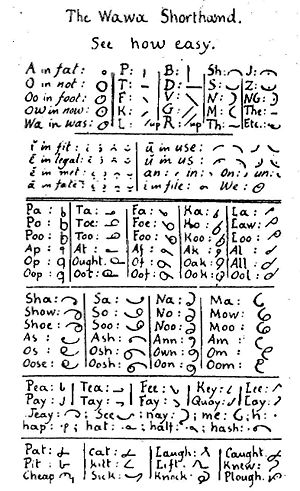 The Wawa Shorthand.
See how easy.
A in fat: P: B: Sh: J:
O in not: T: D: S: Z:
Oo in foot: F: V: N: NG:
Ow in now: K: G: M: The:
Wa in was: L: /up R: /up Th: Etc:
i in fit: ū in use:
ē in legal: u in us:
e in met: an: in: On: un:
ā in fate: i in file: We:
Pa: Ta: Fa: Ka: La:
Po: Toe: Foe: Ko: Law:
Poo: Too: Foo: Koo: Loo:
Ap: At: Af: Ak: All:
Op: Ought: Of: Oak: All:
Oop: Oot: Oof: Ook: Ool:
Sha: Sa: Na: Ma:
Show: So: No: Mow:
Shoe: Soo: Noo: Moo:
As: Ash: Ann: Am:
Os: Osh: Own: Om:
Oose: Oosh: Oon: Oom:
Pea: Tea: Fee: Key: Lee:
Pay: Tay: Fay: Quay: Lay:
Jeay: See nay: me: h:
hap: hat: half: hash:
Pat: Cat: Laugh: Caught
Pit: Kilt: Lift: Knew:
Cheap Sick: Knock Plough.